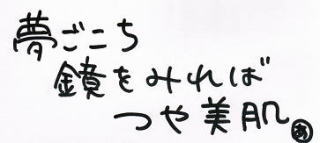 夢ごこち
鏡をみれば
つや美肌
あ